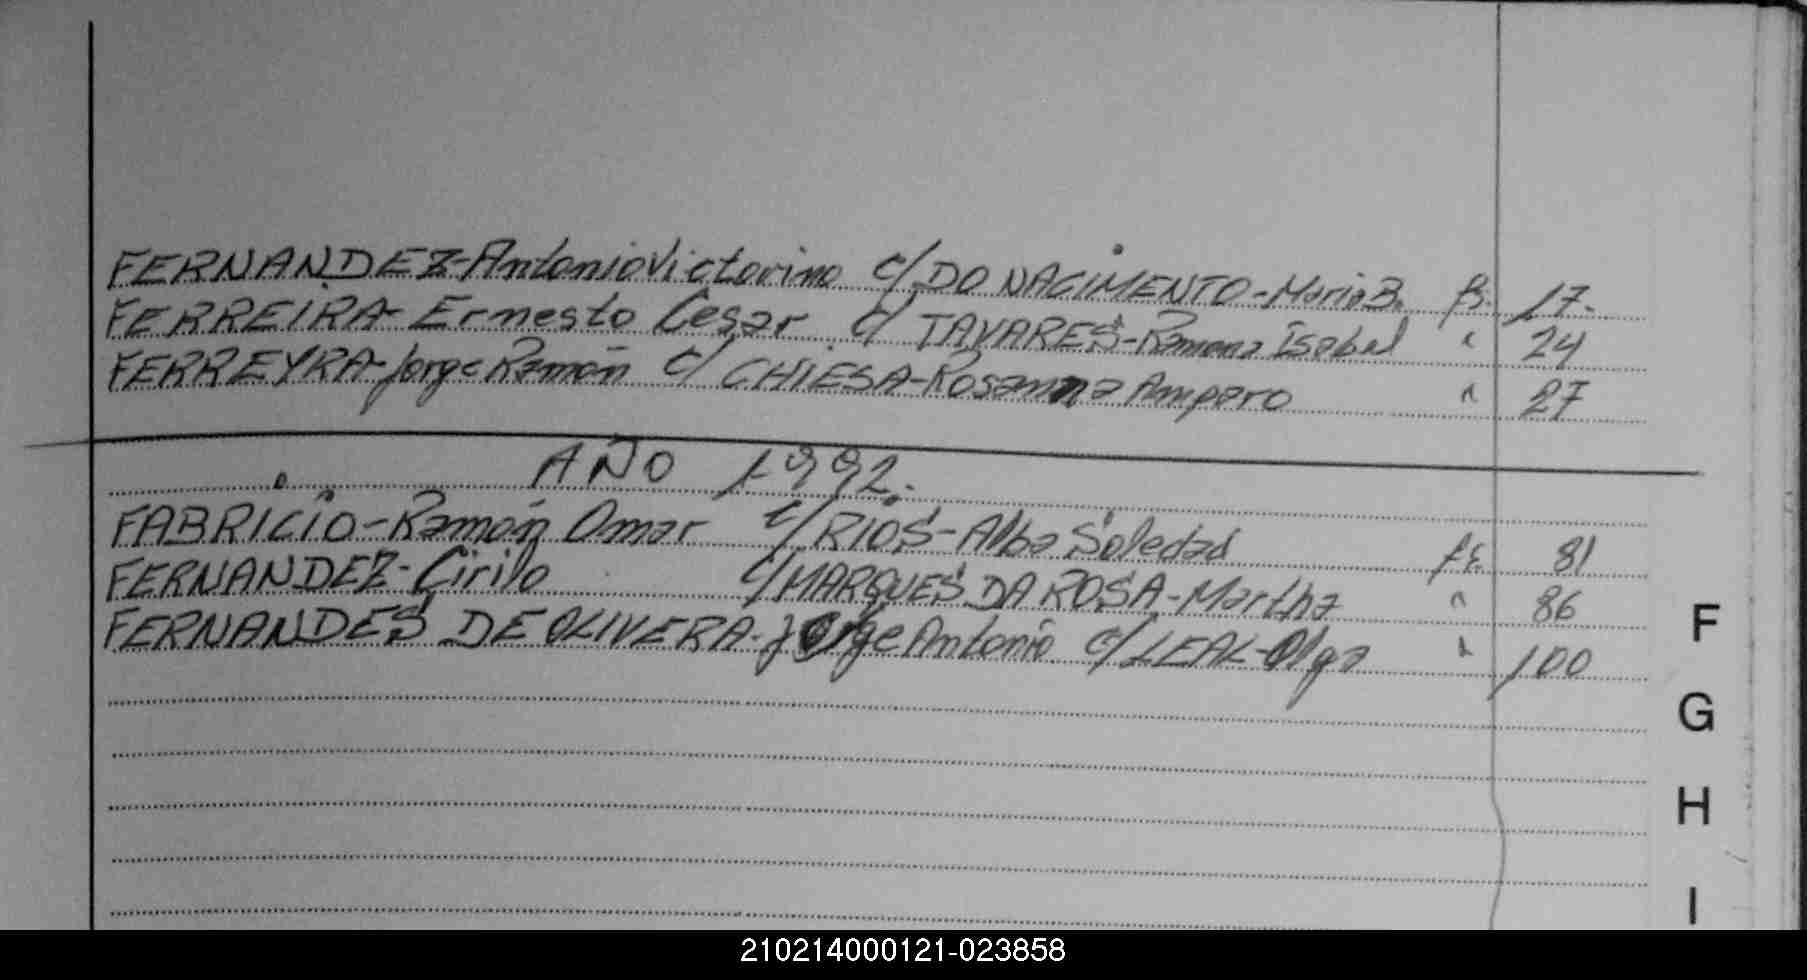 FERNANDEZ-Antonio Victorino c/ DO NACIMENTO-Maria B. fs. 17.
FERREIRA-Ernesto Cesar c/ TAVARES-Ramona Isabel " 24
FERREYRA-Jorge Ramón c/ CHIESA-Rosanna Amparo " 27
AÑO 1992.
FABRICIO-Ramón Omar c/ RIOS-Alba Soledad fs. 81
FERNANDEZ-Cirilo c/ MARQUES DA ROSA-Martha " 86
FERNANDES DE OLIVERA-Jorge Antonio c/ LEAL-Olga " 100
F
G
H
I
210214000121-023858